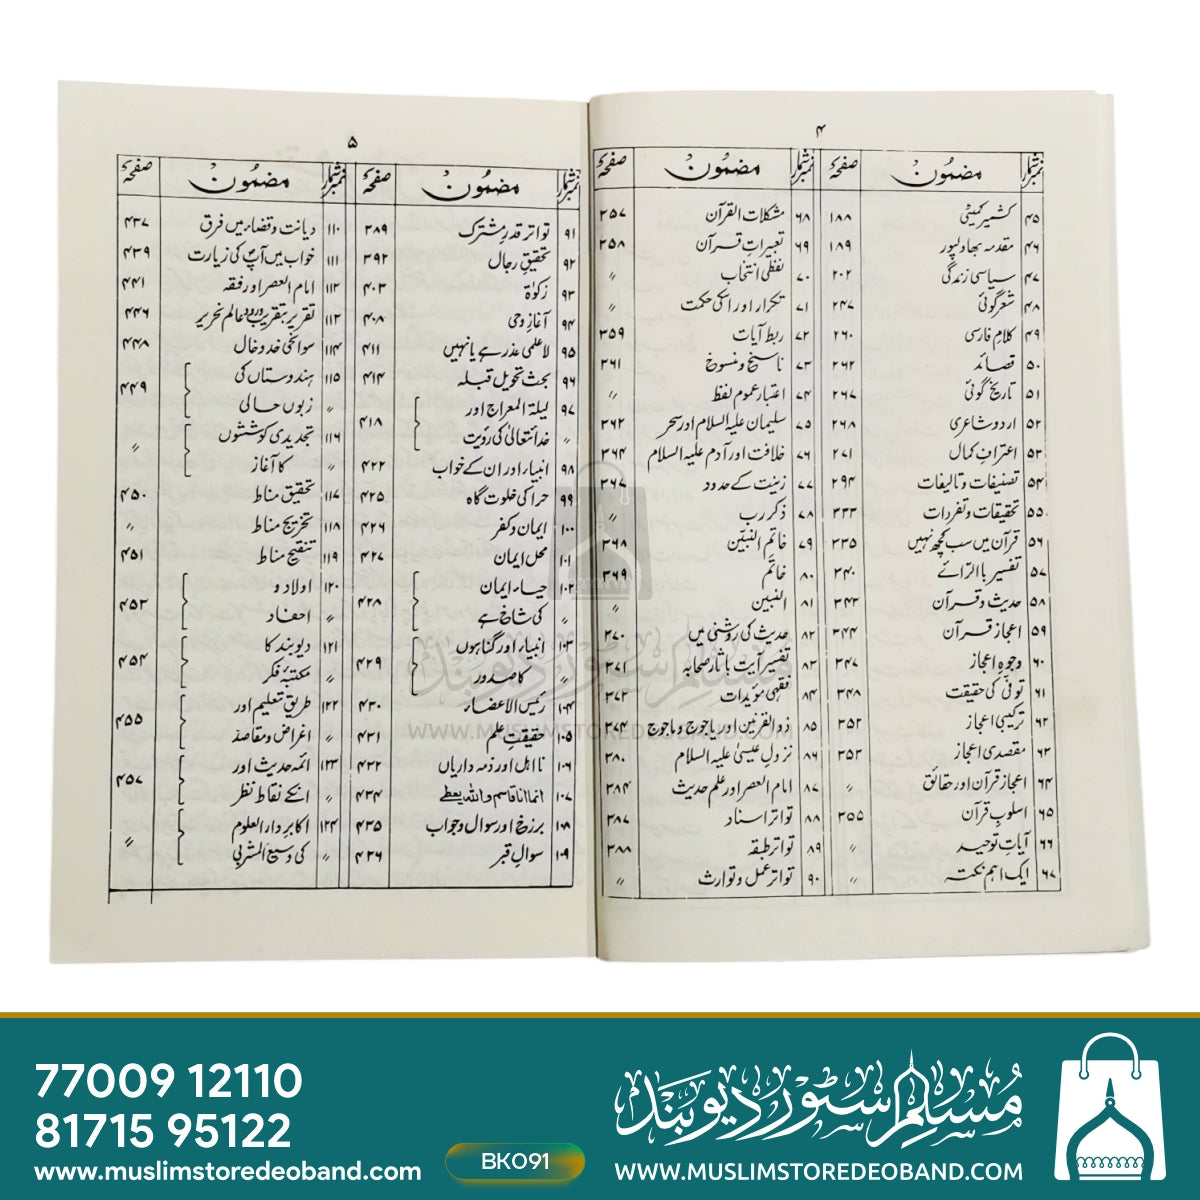 ۴
نمبر شمار مضمون صفحہ
۴۵ کشمیر کمیٹی ۱۸۸
۴۶ مقدمہ بھاولپور ۱۸۹
۴۷ سیاسی زندگی ۲۰۲
۴۸ شعر گوئی ۲۴۷
۴۹ کلام فارسی ۲۶۰
۵۰ قصائد ۲۶۲
۵۱ تاریخ گوئی ۲۶۷
۵۲ اردو شاعری ۲۶۸
۵۳ اعترافِ کمال ۲۷۱
۵۴ تصنیفات و تالیفات ۲۹۴
۵۵ تحقیقات و تفردات ۳۳۳
۵۶ قرآن میں سب کچھ نہیں ۳۳۵
۵۷ تفسیر بالرائے ۳۴۰
۵۸ حدیث و قرآن ۳۴۳
۵۹ اعجازِ قرآن ۳۴۴
۶۰ وجوہِ اعجاز ۳۴۷
۶۱ توفّی کی حقیقت ۳۴۸
۶۲ ترکیبی اعجاز ۳۵۲
۶۳ مقصدی اعجاز ۳۵۳
۶۴ اعجاز قرآن اور حقائق ״
۶۵ اسلوبِ قرآن ۳۵۵
۶۶ آیاتِ توحید ״
۶۷ ایک اہم نکتہ ״
نمبر شمار مضمون صفحہ
۶۸ مشکلات القرآن ۳۵۷
۶۹ تعبیراتِ قرآن ۳۵۸
۷۰ لفظی انتخاب ״
۷۱ تکرار اور اسکی حکمت ״
۷۲ ربط آیات ۳۵۹
۷۳ ناسخ و منسوخ ۳۶۱
۷۴ اعتبار عموم لفظ ״
۷۵ سلیمان علیہ السلام اور سحر ۳۶۲
۷۶ خلافت اور آدم علیہ السلام ۳۶۴
۷۷ زینت کے حدود ۳۶۷
۷۸ ذکر رب ״
۷۹ خاتم النبیّن ۳۶۸
۸۰ خاتم ۳۶۹
۸۱ النبین ״
۸۲ حدیث کی روشنی میں ۳۷۰
۸۳ تفسیر آیت با ثار صحابہ ۳۷۱
۸۴ فقہی مؤیدات ۳۷۲
۸۵ ذوالقرنین اور یاجوج و ماجوج ۳۷۴
۸۶ نزول عیسیٰ علیہ السلام ۳۸۰
۸۷ امام العصر اور علم حدیث ۳۸۴
۸۸ تواتر اسناد ۳۸۷
۸۹ تواتر طبقہ ۳۸۸
۹۰ تواتر عمل و توارث ״
۵
نمبر شمار مضمون صفحہ
۹۱ تواتر قدرِ مشترک ۳۸۹
۹۲ تحقیقِ رجال ۳۹۲
۹۳ زکوٰۃ ۴۰۳
۹۴ آغازِ وحی ۴۰۸
۹۵ لاعلمی عذر ہے یا نہیں ۴۱۱
۹۶ بحث تحویل قبلہ ۴۱۴
۹۷ لیلۃ المعراج اور
״ خدا تعالیٰ کی رؤیت ۴۱۸
۹۸ انبیاء اور ان کے خواب ۴۲۲
۹۹ حرا کی خلوت گاہ ۴۲۵
۱۰۰ ایمان و کفر ۴۲۶
۱۰۱ محل ایمان ۴۲۷
۱۰۲ حیاء ایمان
״ کی شاخ ہے ۴۲۸
۱۰۳ انبیاء اور گناہوں
״ کا صدور ۴۲۹
۱۰۴ رئیس الاعضاء ۴۳۰
۱۰۵ حقیقتِ علم ۴۳۱
۱۰۶ نا اہل اور ذمہ داریاں ۴۳۲
۱۰۷ انما انا قاسم واللہ یعطی ۴۳۴
۱۰۸ برزخ اور سوال و جواب ۴۳۵
۱۰۹ سوالِ قبر ۴۳۶
نمبر شمار مضمون صفحہ
۱۱۰ دیانت و قضاء میں فرق ۴۳۷
۱۱۱ خواب میں آپؐ کی زیارت ۴۳۹
۱۱۲ امام العصر اور فقہ ۴۴۱
۱۱۳ تقریر بتقریب ورود عالم نحریر ۴۴۶
۱۱۴ سوانحی خد و خال ۴۴۸
۱۱۵ ہندوستاں کی
״ زبوں حالی ۴۴۹
۱۱۶ تجدیدی کوششوں
״ کا آغاز ״
۱۱۷ تحقیق مناط ۴۵۰
۱۱۸ تخریج مناط ״
۱۱۹ تنقیح مناط ۴۵۱
۱۲۰ اولاد و
״ احفاد ۴۵۳
۱۲۱ دیوبند کا
״ مکتبۂ فکر ۴۵۴
۱۲۲ طریق تعلیم اور
״ اغراض و مقاصد ۴۵۵
۱۲۳ ائمہ حدیث اور
״ انکے نقاط نظر ۴۵۷
۱۲۴ اکابر دار العلوم
״ کی وسیع المشربی ״
مسلم سٹور دیوبند
WWW.MUSLIMSTOREDEOBAND.COM
77009 12110
81715 95122
www.muslimstoredeoband.com
BK091
مسلم سٹور دیوبند
WWW.MUSLIMSTOREDEOBAND.COM